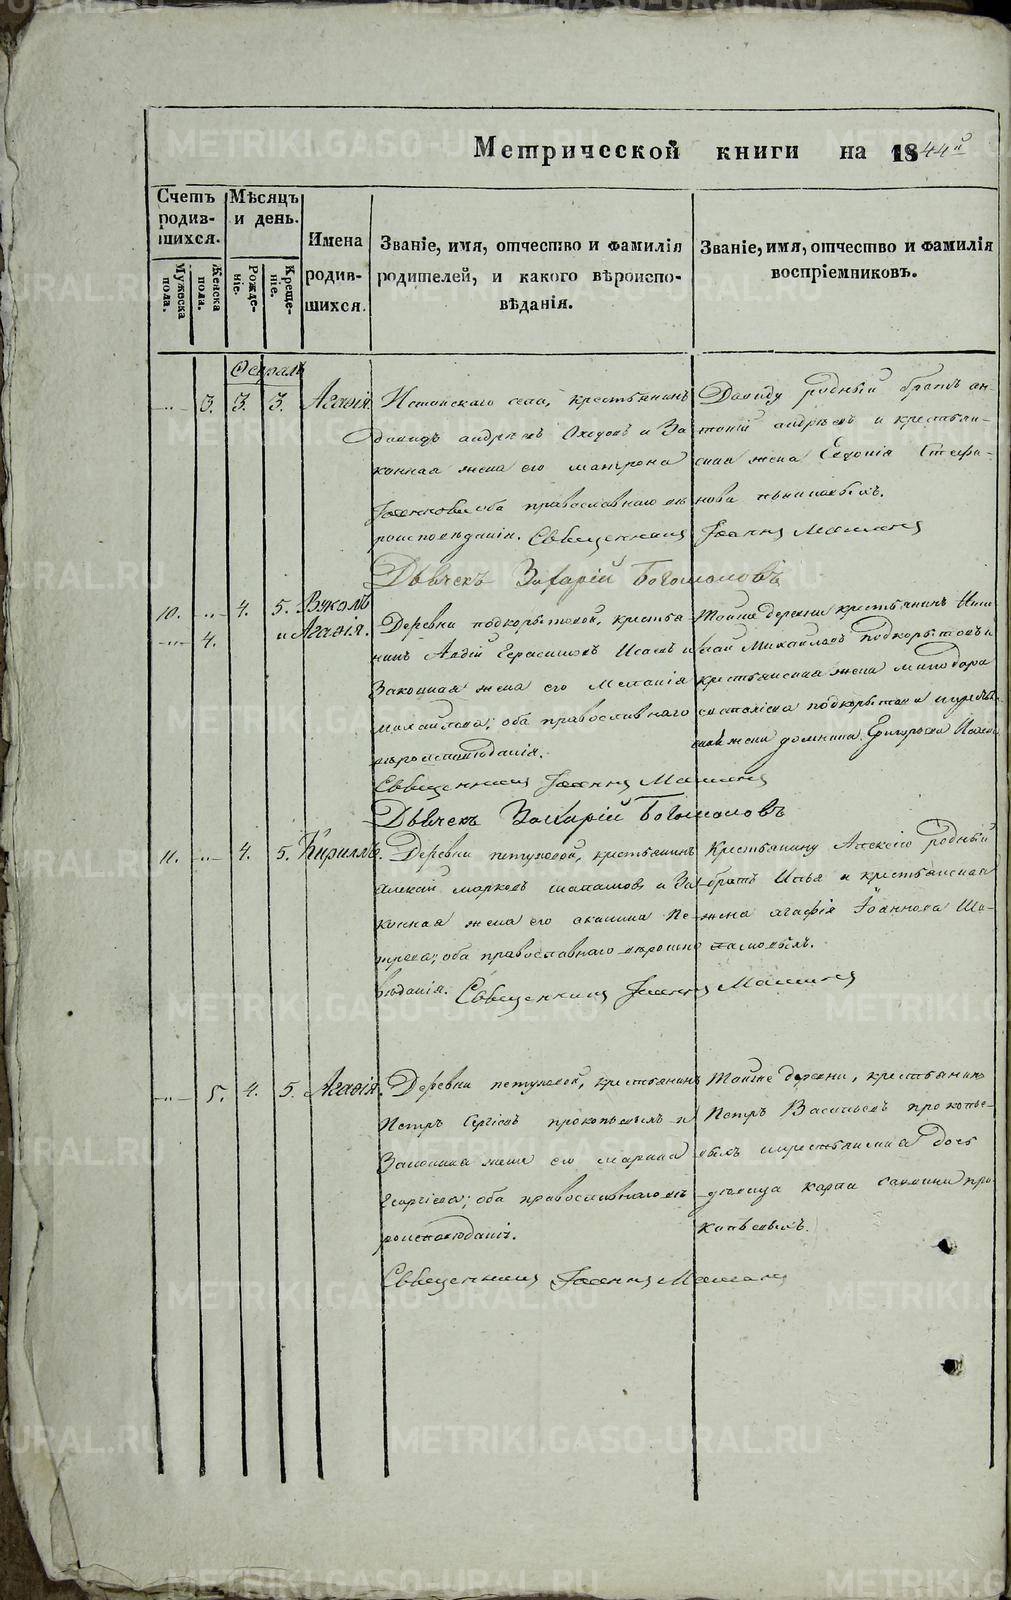 Метрической книги на 1844й
Счетъ родив-шихся.
Мужеска пола.
Женска пола.
Мѣсяцъ и день.
Рожде-ніе.
Креще-ніе.
Имена родив-шихся.
Званіе, имя, отчество и фамилія родителей, и какого вѣроиспо-вѣданія.
Званіе, имя, отчество и фамилія воспріемниковъ.
3. 3. 3. Агафія
крестьянинъ
Давидъ Андреевъ и За-
конная жена его Матрона
оба православнаго вѣ
роисповѣданія. Священникъ Іоаннъ
Давиду родный братъ Ан-
тоній Андреевъ и крестьян-
ская жена Евдокія Стефа-
нова
Дьячекъ Захарій Богомоловъ
10. 4. 5. Вуколъ
4. и Агафія.
Деревни Подкорытовой, крестья-
нинъ Авдій Герасимовъ Исаевъ и
Законная жена его Меланія
оба православнаго
вѣроисповѣданія.
Тойже деревни крестьянинъ
Михайловъ Подкорытовъ и
крестьянская жена
Подкорытова и
жена Домнина
Священникъ Іоаннъ
Дьячекъ Захарій Богомоловъ
11. 4. 5. Кириллъ.
Деревни Петуховой, крестьянинъ
Алексій Марковъ Шаламовъ и За-
конная жена его Акилина Пе-
трова; оба православнаго вѣроиспо
вѣданія. Священникъ Іоаннъ
Крестьянину Алексію родный
братъ Илья и крестьянская
жена Агафія Іоаннова Ша-
ламовыхъ.
5. 4. 5. Агафія.
Деревни Петуховой, крестьянинъ
Петръ Сергіевъ Прокопьевыхъ и
Законная жена его Марина
Георгіева; оба православнаго вѣ
роисповѣданія.
Тойже деревни, крестьянинъ
Петръ Васильевъ Прокопье-
выхъ и крестьянина дочь
дѣвица Про-
копьевыхъ.
Священникъ Іоаннъ
METRIKI.GASO-URAL.RU